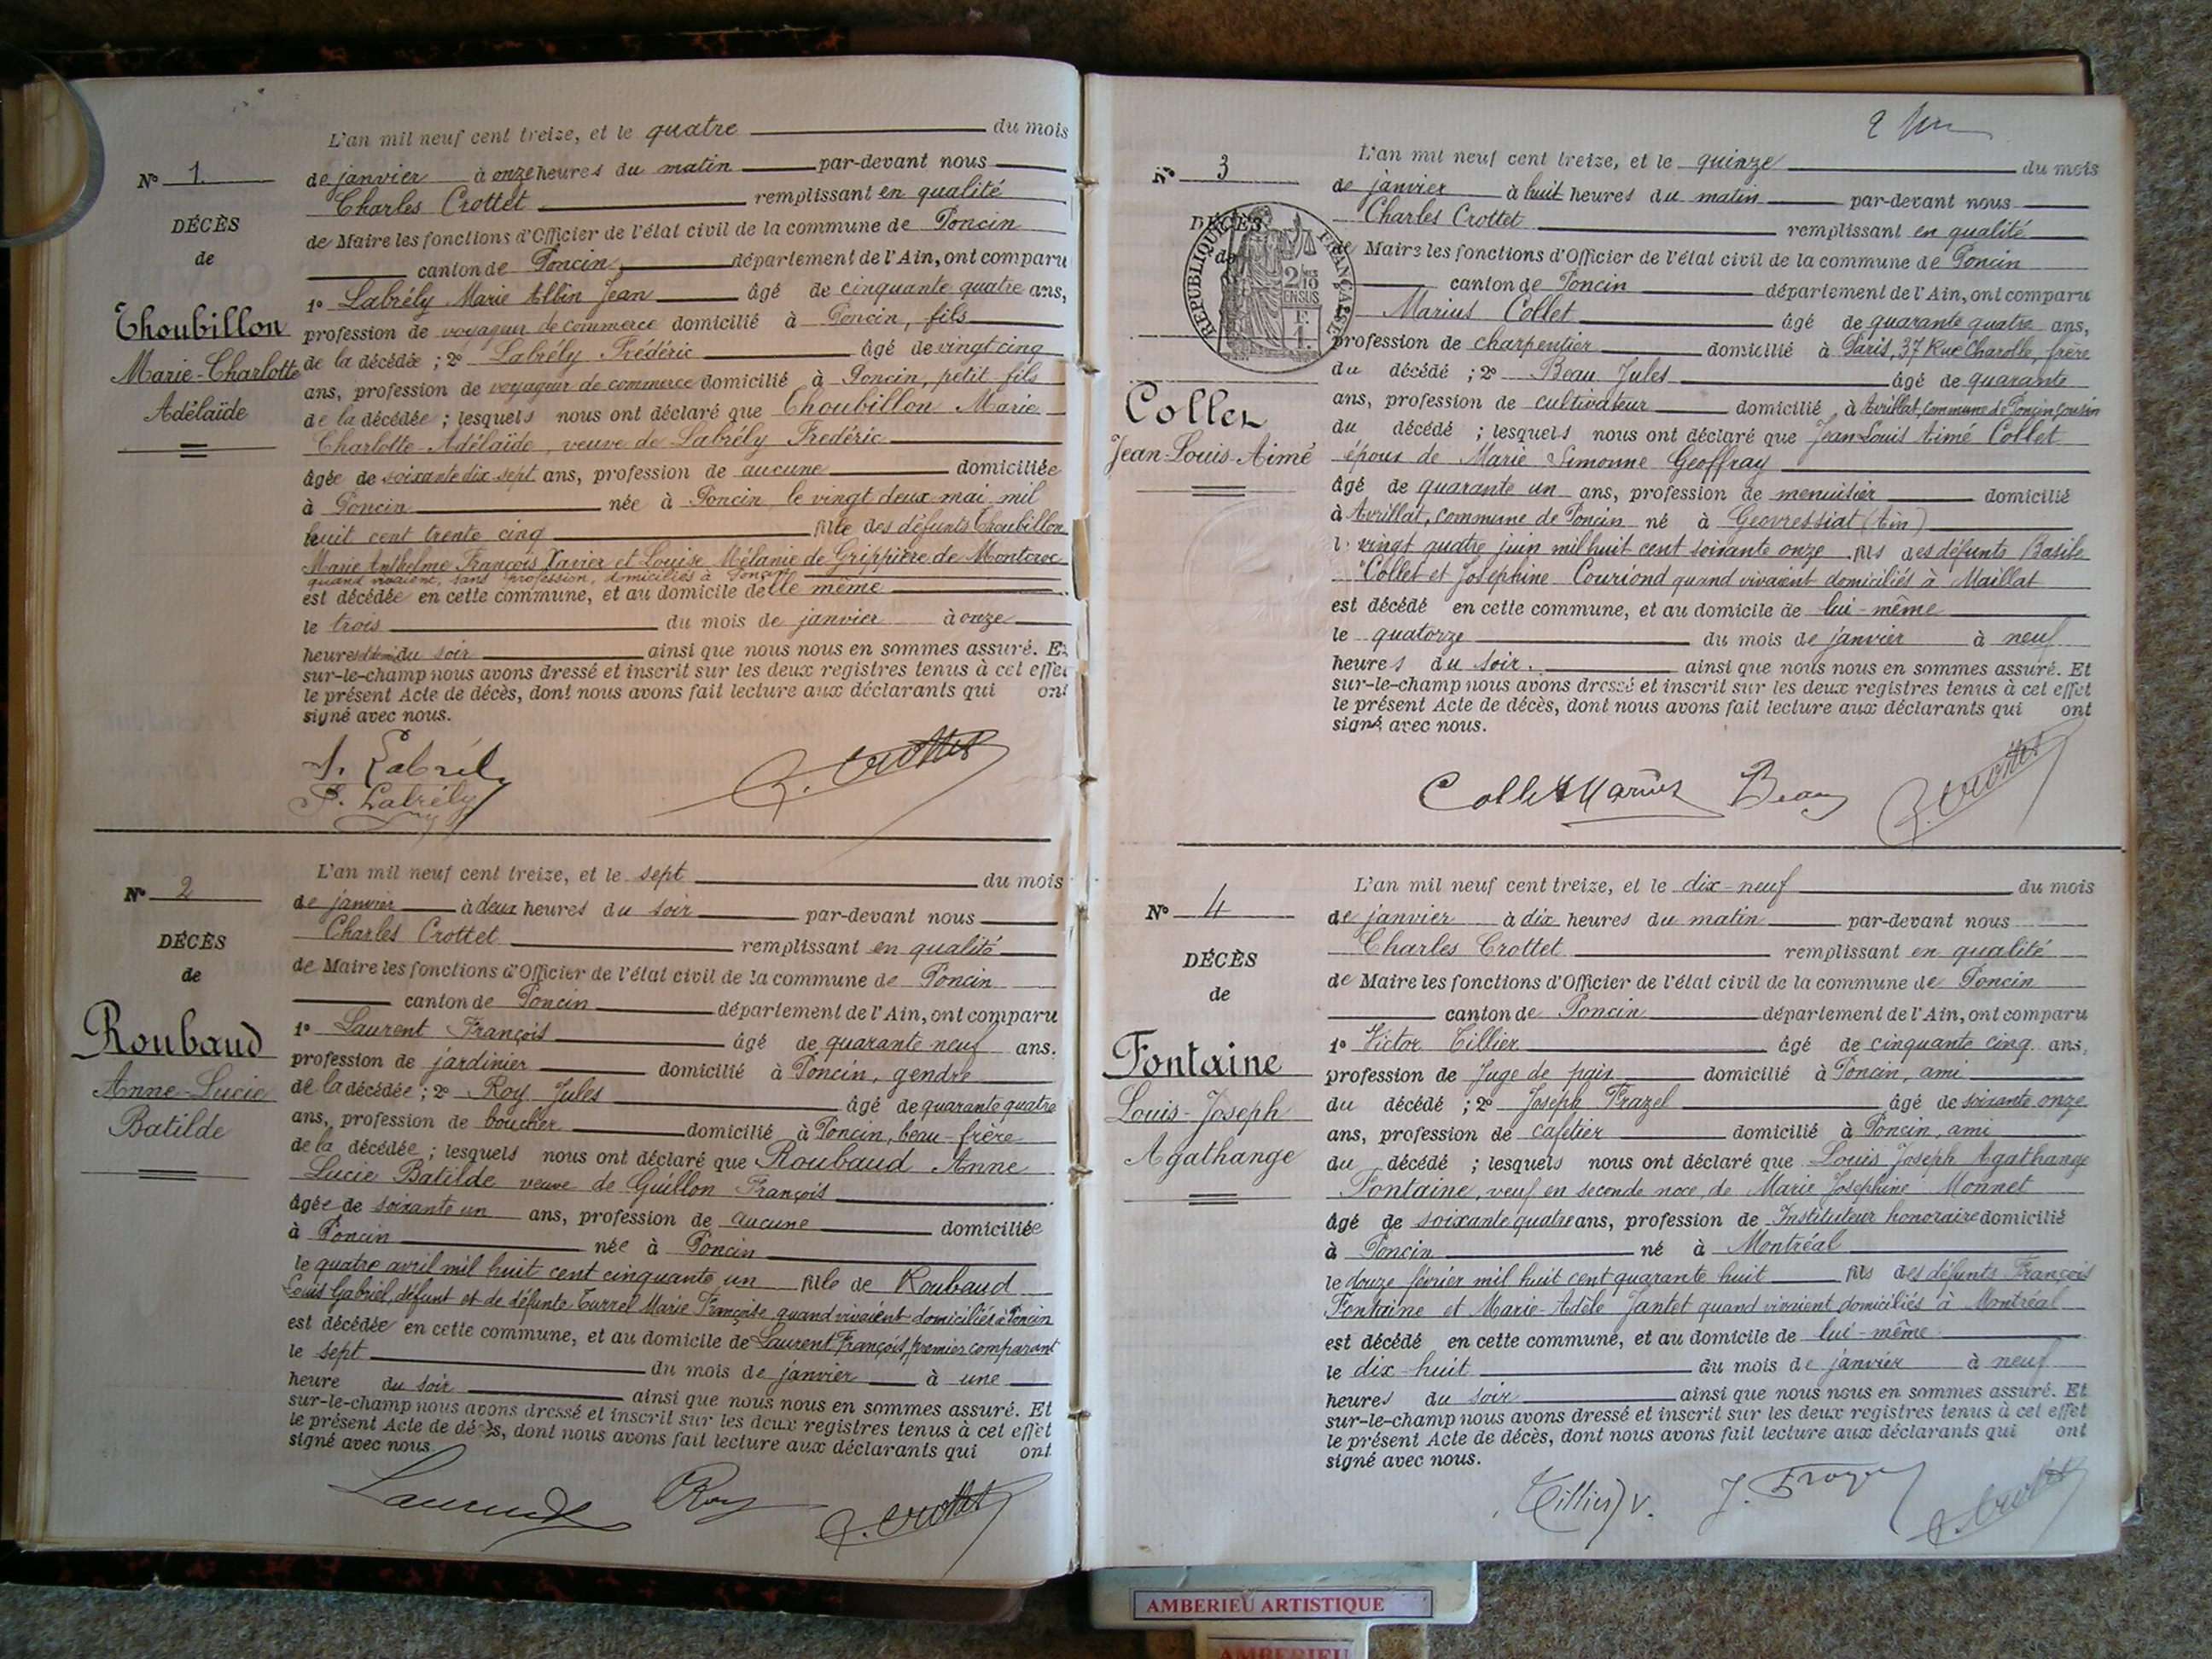 L'an mil neuf cent treize, et le quatre du mois
N° 1.
de janvier à onze heures du matin par-devant nous
Charles Crottet remplissant en qualité
DÉCÈS
de Maire les fonctions d'Officier de l'état civil de la commune de Poncin
de
canton de Poncin département de l'Ain, ont comparu
1° Labrély Marie Albin Jean âgé de cinquante quatre ans,
Thoubillon
profession de voyageur de commerce domicilié à Poncin, fils
Marie-Charlotte
de la décédée ; 2° Labrély Frédéric âgé de vingt cinq
ans, profession de voyageur de commerce domicilié à Poncin, petit fils
Adélaïde
de la décédée ; lesquels nous ont déclaré que Thoubillon Marie
Charlotte Adélaïde, veuve de Labrély Frédéric
âgée de soixante dix sept ans, profession de aucune domiciliée
à Poncin née à Poncin le vingt deux mai mil
huit cent trente cinq fille des défunts Thoubillon
Marie Anthelme François Xavier et Louise Mélanie de Grippière de Montcroc
quand vivaient, sans profession, domiciliés à Poncin
est décédée en cette commune, et au domicile d'elle même
le trois du mois de janvier à onze
heures du soir ainsi que nous nous en sommes assuré. Et
sur-le-champ nous avons dressé et inscrit sur les deux registres tenus à cet effet
le présent Acte de décès, dont nous avons fait lecture aux déclarants qui ont
signé avec nous.
A. Labrély
F. Labrély
C. Crottet
L'an mil neuf cent treize, et le sept du mois
N° 2
de janvier à deux heures du soir par-devant nous
Charles Crottet remplissant en qualité
DÉCÈS
de Maire les fonctions d'Officier de l'état civil de la commune de Poncin
de
canton de Poncin département de l'Ain, ont comparu
1° Laurent François âgé de quarante neuf ans.
Roubaud
profession de jardinier domicilié à Poncin, gendre
Anne-Lucie
de la décédée ; 2° Roy Jules âgé de quarante quatre
Batilde
ans, profession de boucher domicilié à Poncin, beau-frère
de la décédée ; lesquels nous ont déclaré que Roubaud Anne
Lucie Batilde veuve de Guillon François
âgée de soixante un ans, profession de aucune domiciliée
à Poncin née à Poncin
le quatre avril mil huit cent cinquante un fille de Roubaud
Louis Gabriel, défunt et de défunte Turrel Marie Françoise quand vivaient domiciliés à Poncin
est décédée en cette commune, et au domicile de Laurent François, premier comparant
le sept du mois de janvier à une
heure du soir ainsi que nous nous en sommes assuré. Et
sur-le-champ nous avons dressé et inscrit sur les deux registres tenus à cet effet
le présent Acte de décès, dont nous avons fait lecture aux déclarants qui ont
signé avec nous.
Laurent Roy C. Crottet
2
L'an mil neuf cent treize, et le quinze du mois
N° 3
de janvier à huit heures du matin par-devant nous
Charles Crottet remplissant en qualité
DÉCÈS
de
RÉPUBLIQUE FRANÇAISE
2/10 EN SUS
F. 1.
de Maire les fonctions d'Officier de l'état civil de la commune de Poncin
canton de Poncin département de l'Ain, ont comparu
Marius Collet âgé de quarante quatre ans,
profession de charpentier domicilié à Paris, 37 Rue Charolle, frère
du décédé ; 2° Beau Jules âgé de quarante
Collet
ans, profession de cultivateur domicilié à Avrillat, commune de Poncin, cousin
du décédé ; lesquels nous ont déclaré que Jean Louis Aimé Collet
Jean-Louis-Aimé
époux de Marie Simonne Geoffray
âgé de quarante un ans, profession de menuisier domicilié
à Avrillat, commune de Poncin né à Geovressiat (Ain)
le vingt quatre juin mil huit cent soixante onze fils des défunts Basile
Collet et Joséphine Couriond quand vivaient domiciliés à Maillat
est décédé en cette commune, et au domicile de lui-même
le quatorze du mois de janvier à neuf
heures du soir. ainsi que nous nous en sommes assuré. Et
sur-le-champ nous avons dressé et inscrit sur les deux registres tenus à cet effet
le présent Acte de décès, dont nous avons fait lecture aux déclarants qui ont
signé avec nous.
Collet Marius Beau C. Crottet
L'an mil neuf cent treize, et le dix-neuf du mois
N° 4
de janvier à dix heures du matin par-devant nous
Charles Crottet remplissant en qualité
DÉCÈS
de Maire les fonctions d'Officier de l'état civil de la commune de Poncin
de
canton de Poncin département de l'Ain, ont comparu
1° Victor Tillier âgé de cinquante cinq ans,
Fontaine
profession de Juge de paix domicilié à Poncin, ami
Louis-Joseph
du décédé ; 2° Joseph Frazel âgé de soixante onze
ans, profession de cafetier domicilié à Poncin, ami
Agathange
du décédé ; lesquels nous ont déclaré que Louis Joseph Agathange
Fontaine, veuf en seconde noce, de Marie Joséphine Monnet
âgé de soixante quatre ans, profession de Instituteur honoraire domicilié
à Poncin né à Montréal
le douze février mil huit cent quarante huit fils des défunts François
Fontaine et Marie-Adèle Jantet quand vivaient domiciliés à Montréal
est décédé en cette commune, et au domicile de lui-même
le dix-huit du mois de janvier à neuf
heures du soir ainsi que nous nous en sommes assuré. Et
sur-le-champ nous avons dressé et inscrit sur les deux registres tenus à cet effet
le présent Acte de décès, dont nous avons fait lecture aux déclarants qui ont
signé avec nous.
Tillier V. J. Frazel C. Crottet
AMBERIEU ARTISTIQUE
AMBERIEU